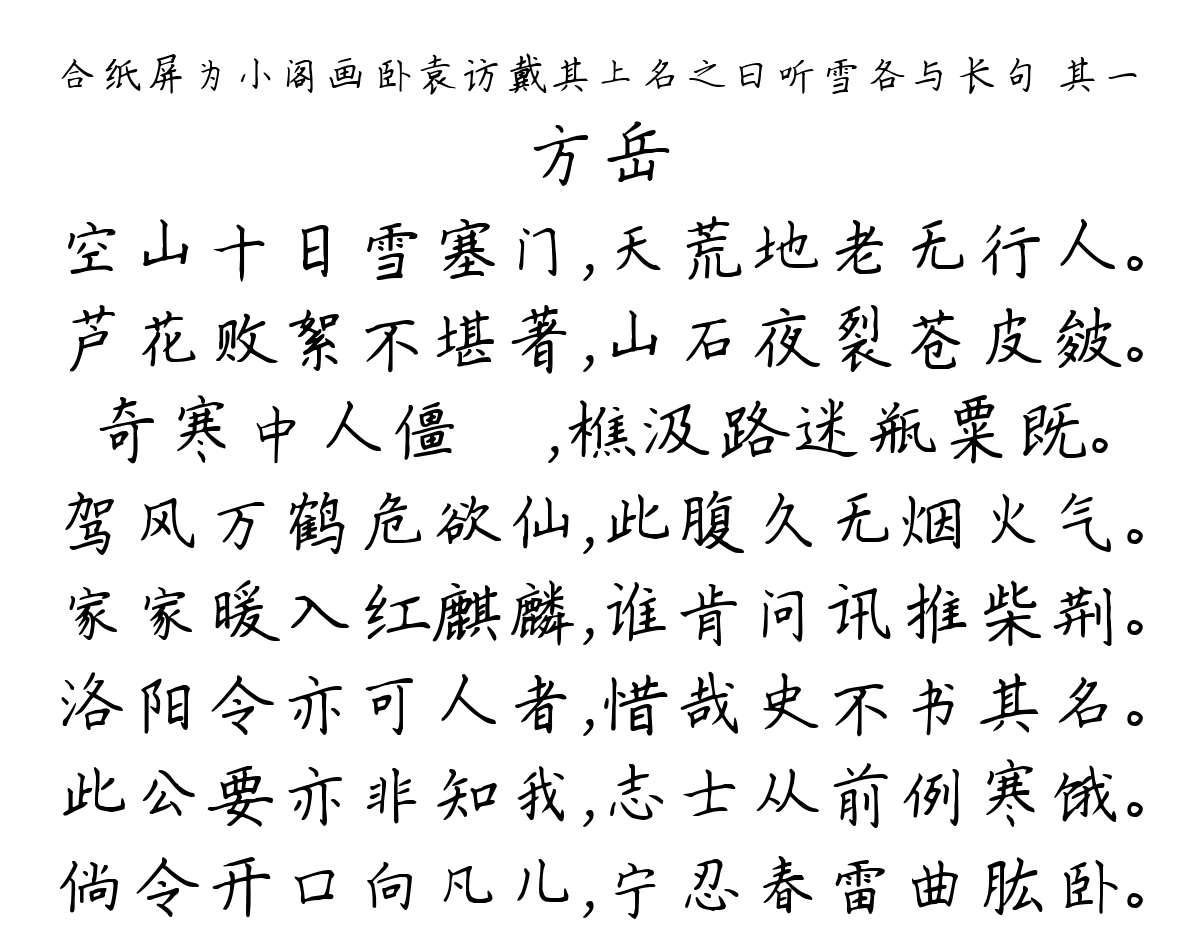 合纸屏为小阁画卧袁访戴其上名之曰听雪各与长句 其一
方岳
空山十日雪塞门,天荒地老无行人。
芦花败絮不堪著,山石夜裂苍皮皴。
奇寒中人僵 ,樵汲路迷瓶粟既。
驾风万鹤危欲仙,此腹久无烟火气。
家家暖入红麒麟,谁肯问讯推柴荆。
洛阳令亦可人者,惜哉史不书其名。
此公要亦非知我,志士从前例寒饿。
倘令开口向凡儿,宁忍春雷曲肱卧。